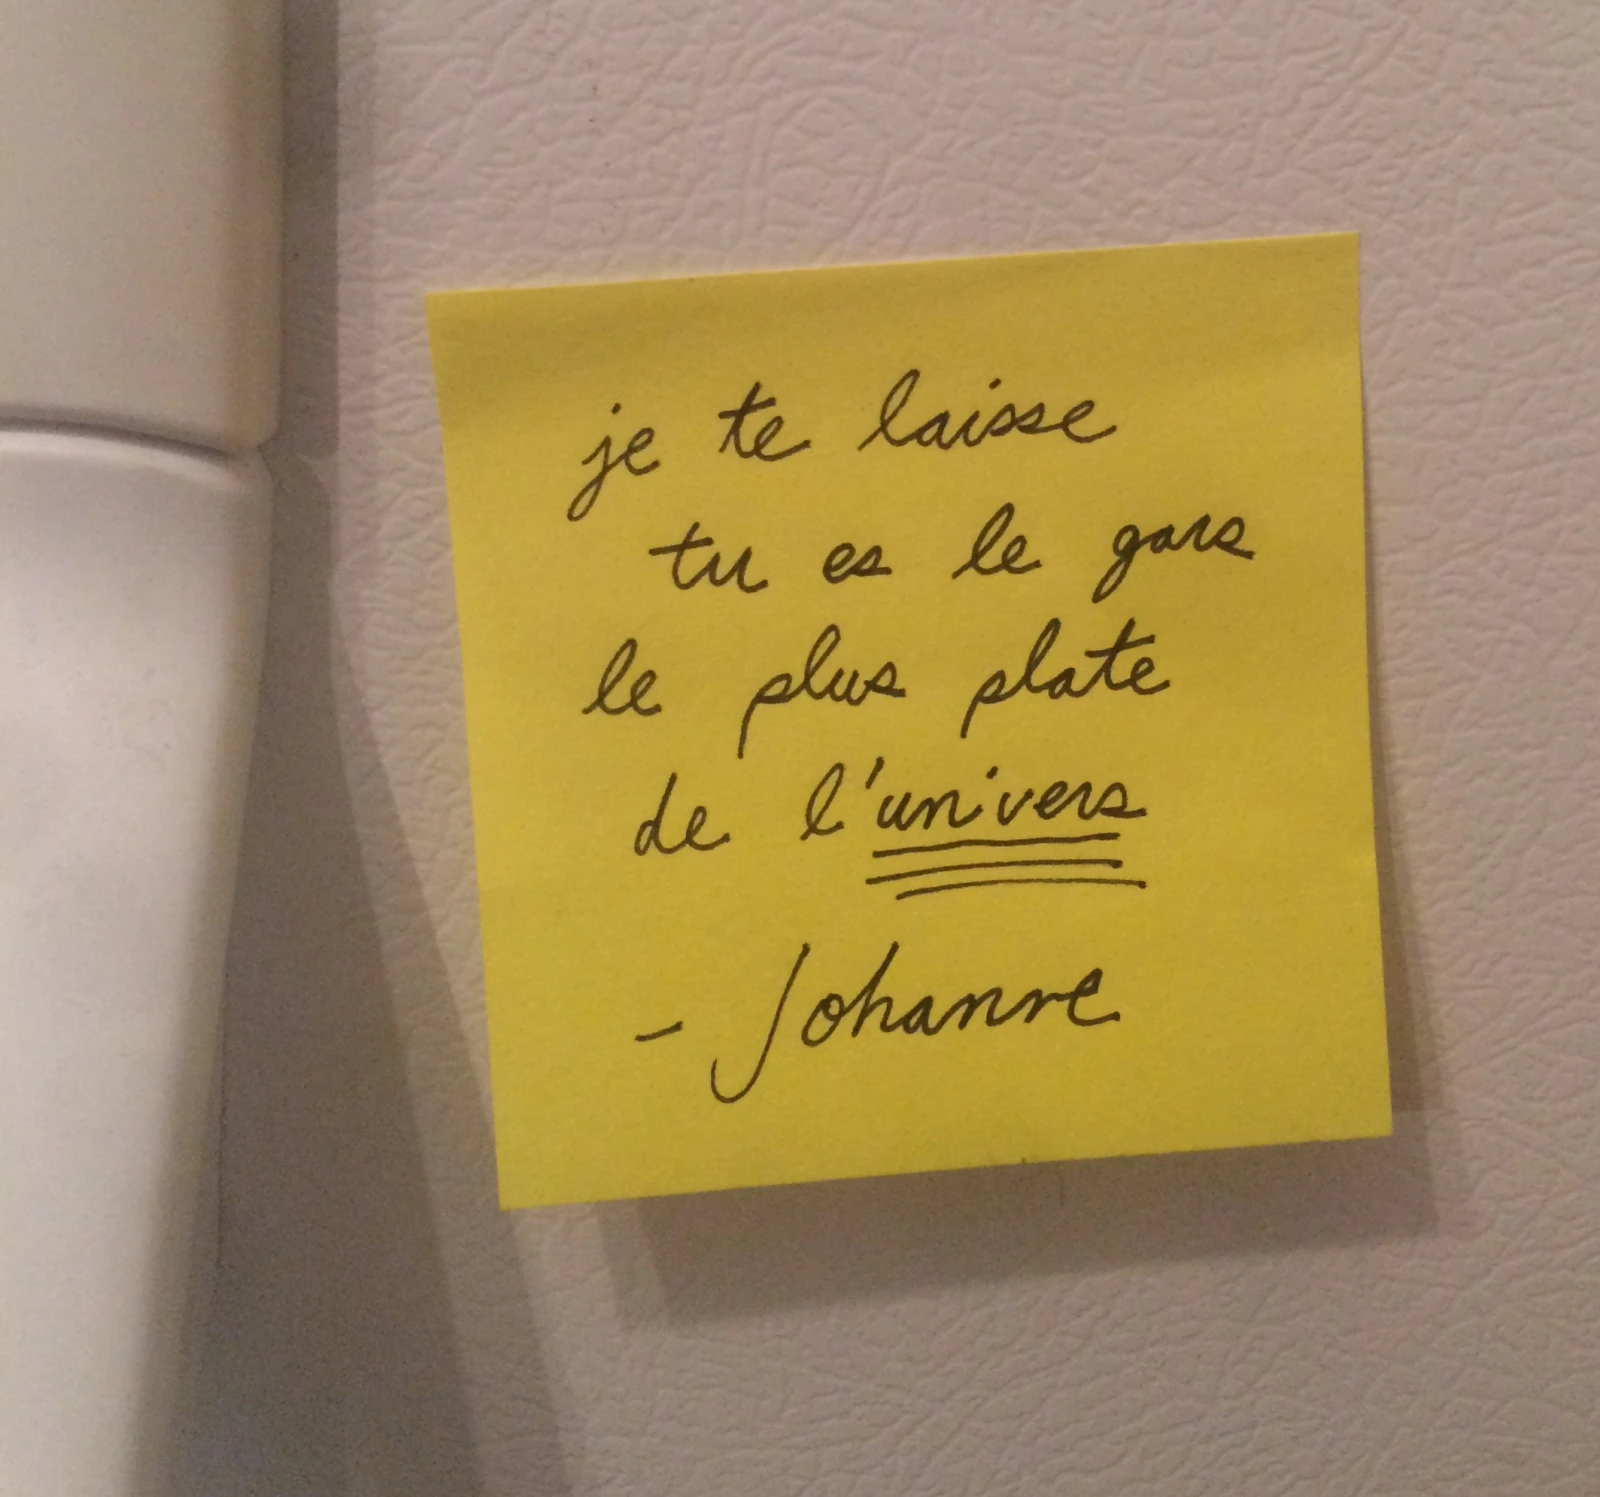 je te laisse
tu es le gars
le plus plate
de l'univers
- Johanne